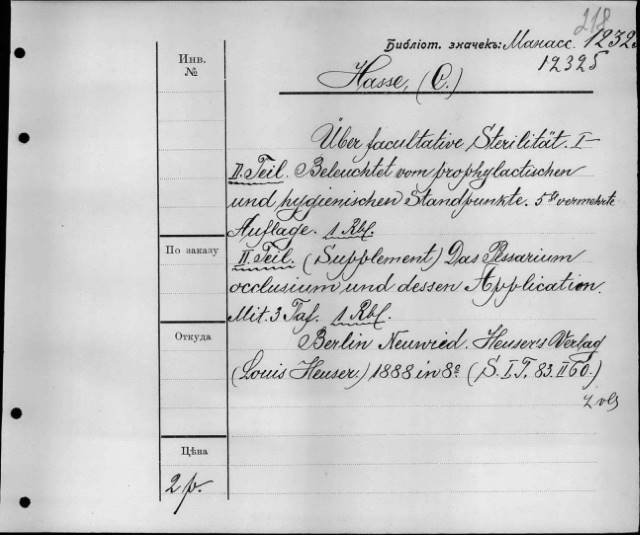 218
Библіот. значекъ: Манасс. 12325
12325
Инв.
№
Hasse, (C.)
Über facultative Sterilität. I–
II. Teil. Beleuchtet vom prophylactischen
und hygienischen Standpunkte. 5te vermehrte
Auflage. 1 Rbl.
По заказу
II. Teil. (Supplement) Das Pessarium
occlusium und dessen Application.
Mit. 3 Taf. 1 Rbl.
Откуда
Berlin Neuwied. Heusers Verlag
(Louis Heuser.) 1888 in 8º (S. I T. 83. II 60.)
2 vols
Цѣна
2 р.